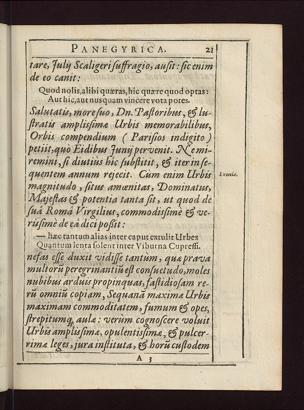 PANEGYRICA. 21
tare, Julij Scaligeri suffragio, ausit: sic enim
de eo canit:
Quod nolis, alibi quæras, hîc quære quod optas:
Aut hîc, aut nusquam vincere vota potes.
Salutatis, more suo, Dn. Pastoribus, & lu-
stratis amplissimæ Urbis memorabilibus,
Orbis compendium (Parisios indigito)
petiit, quò Eidibus Junij pervenit. Ne mi-
remini, si diutius hîc substitit, & iter in se-
quentem annum rejecit. Cum enim Urbis
magnitudo, situs amœnitas, Dominatus,
Majestas & potentia tanta sit, ut quod de
suâ Româ Virgilius, commodissimè & ve-
rissimè de eâ dici possit:
— hæc tantum alias inter caput extulit Urbes
Quantum lenta solent inter Viburna Cupressi.
nefas esse duxit vidisse tantùm, quæ prava
multorũ peregrinantiũ est consuetudo, moles
nubibus arduis propinquas, fastidiosam re-
rũ omniũ copiam, Sequanâ maximâ Urbis
maximam commoditatem, fumum & opes,
strepitumq, aulæ: verùm cognoscere voluit
Urbis amplissimæ, opulentissimæ, & pulcer-
rimæ leges, jura instituta, & horũ custodem
A 3